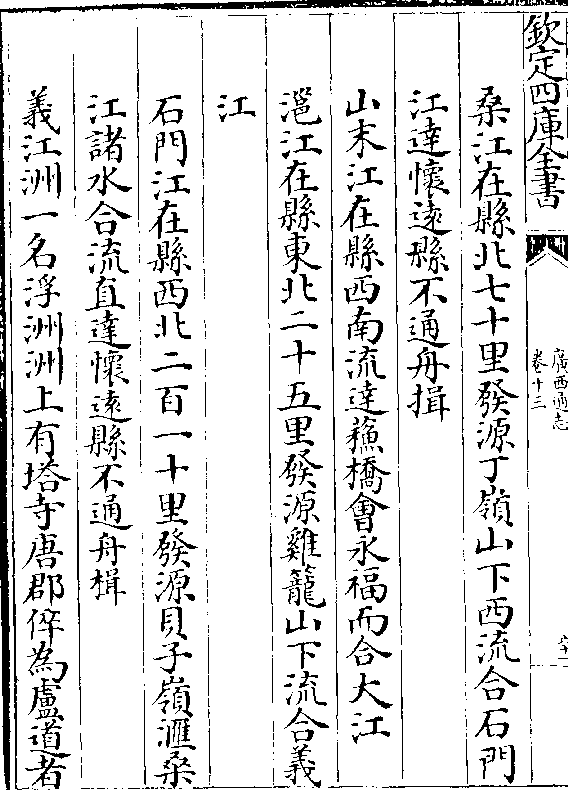 欽定四庫全書
廣西通志
卷十三
桑江在縣北七十里發源丁嶺山下西流合石門
江達懷逺縣不通舟揖
山末江在縣西南流達蘓橋會永福而合大江
滟江在縣東北二十五里發源雞籠山下流合義
江
石門江在縣西北二百一十里發源貝子嶺滙桑
江諸水合流直達懷逺縣不通舟楫
義江洲一名浮洲洲上有塔寺唐郡倅為盧道者